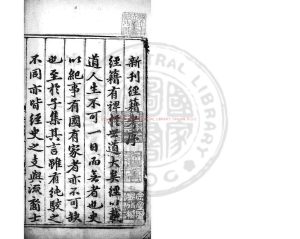 新刊經籍考序
經籍有裨於世道大矣經以載
道人生不可一日而無者也史
以紀事有國有家者亦不可缺
也至於子集其言雖有純駁之
不同亦皆經史之支與流裔士
LIBRARY